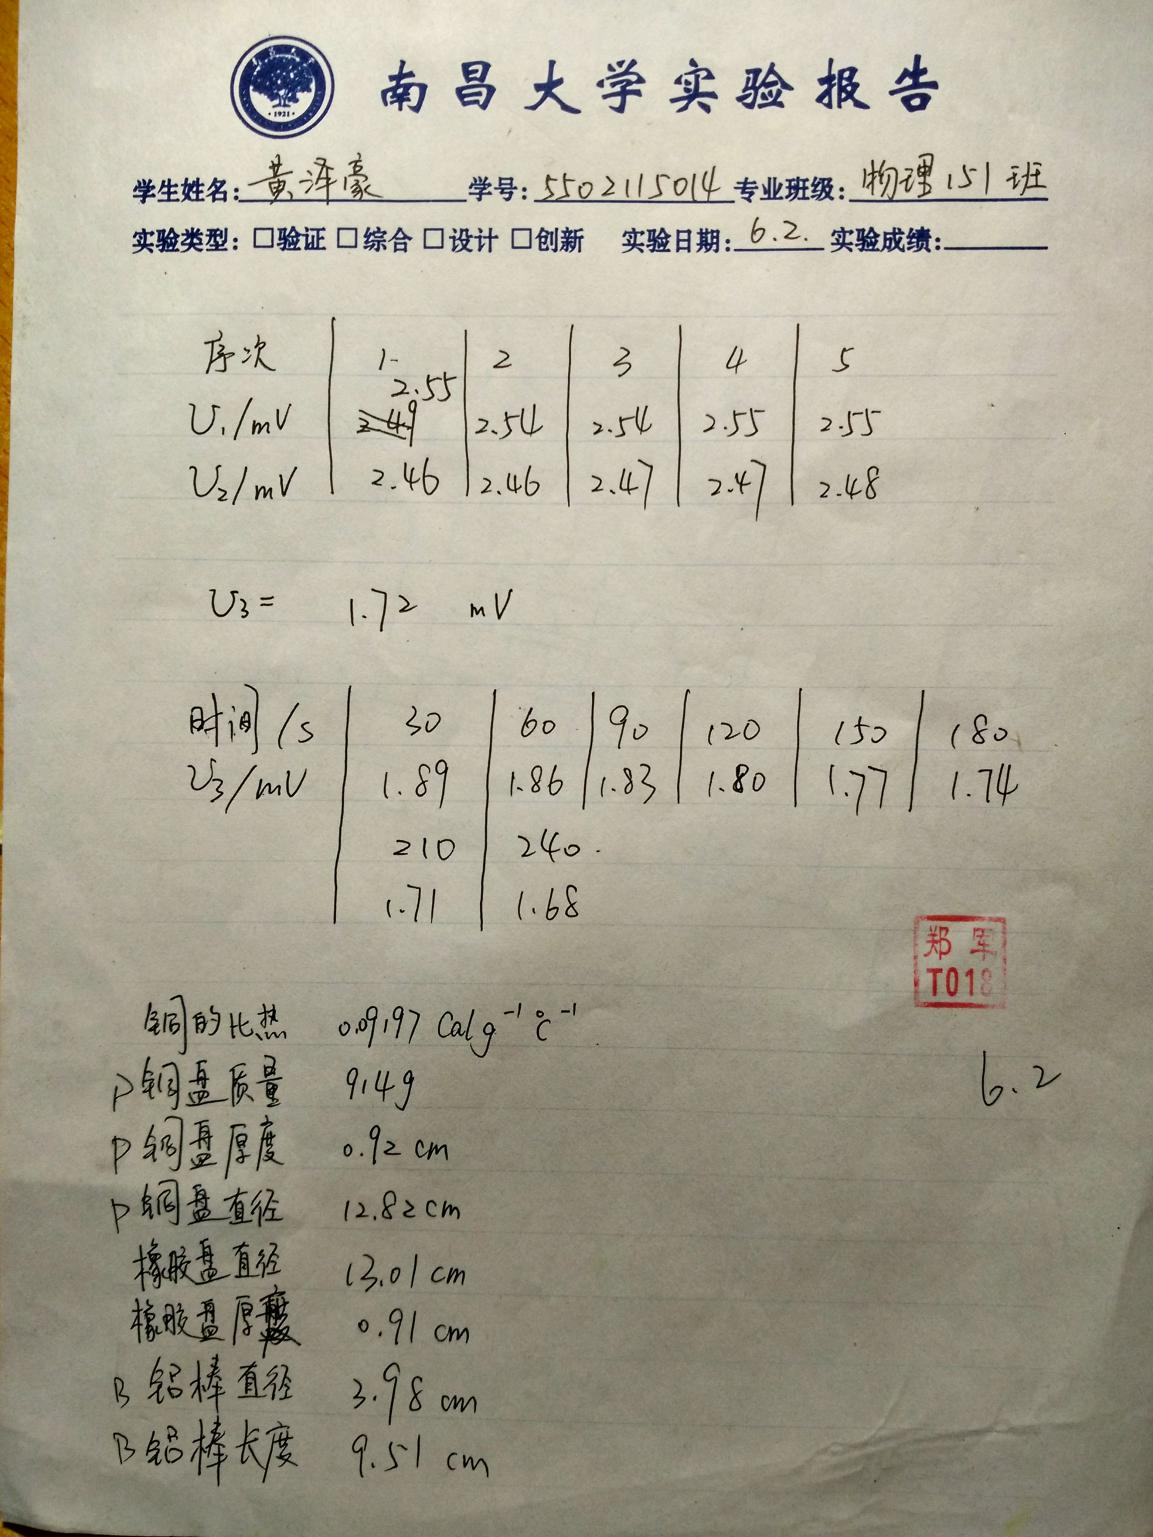 南昌大学实验报告
·1921·
学生姓名:黄泽豪 学号:5502115014 专业班级:物理151班
实验类型:□验证 □综合 □设计 □创新 实验日期:6.2. 实验成绩:
序次 1 2 3 4 5
2.55
U₁/mV 2.49 2.54 2.54 2.55 2.55
U₂/mV 2.46 2.46 2.47 2.47 2.48
U₃= 1.72 mV
时间/s 30 60 90 120 150 180
U₃/mV 1.89 1.86 1.83 1.80 1.77 1.74
210 240
1.71 1.68
郑军
T018
铜的比热 0.09197 Cal g⁻¹ ℃⁻¹
P铜盘质量 914g
6.2
P铜盘厚度 0.92 cm
P铜盘直径 12.82cm
橡胶盘直径 13.01 cm
橡胶盘厚度 0.91 cm
B铝棒直径 3.98 cm
B铝棒长度 9.51 cm